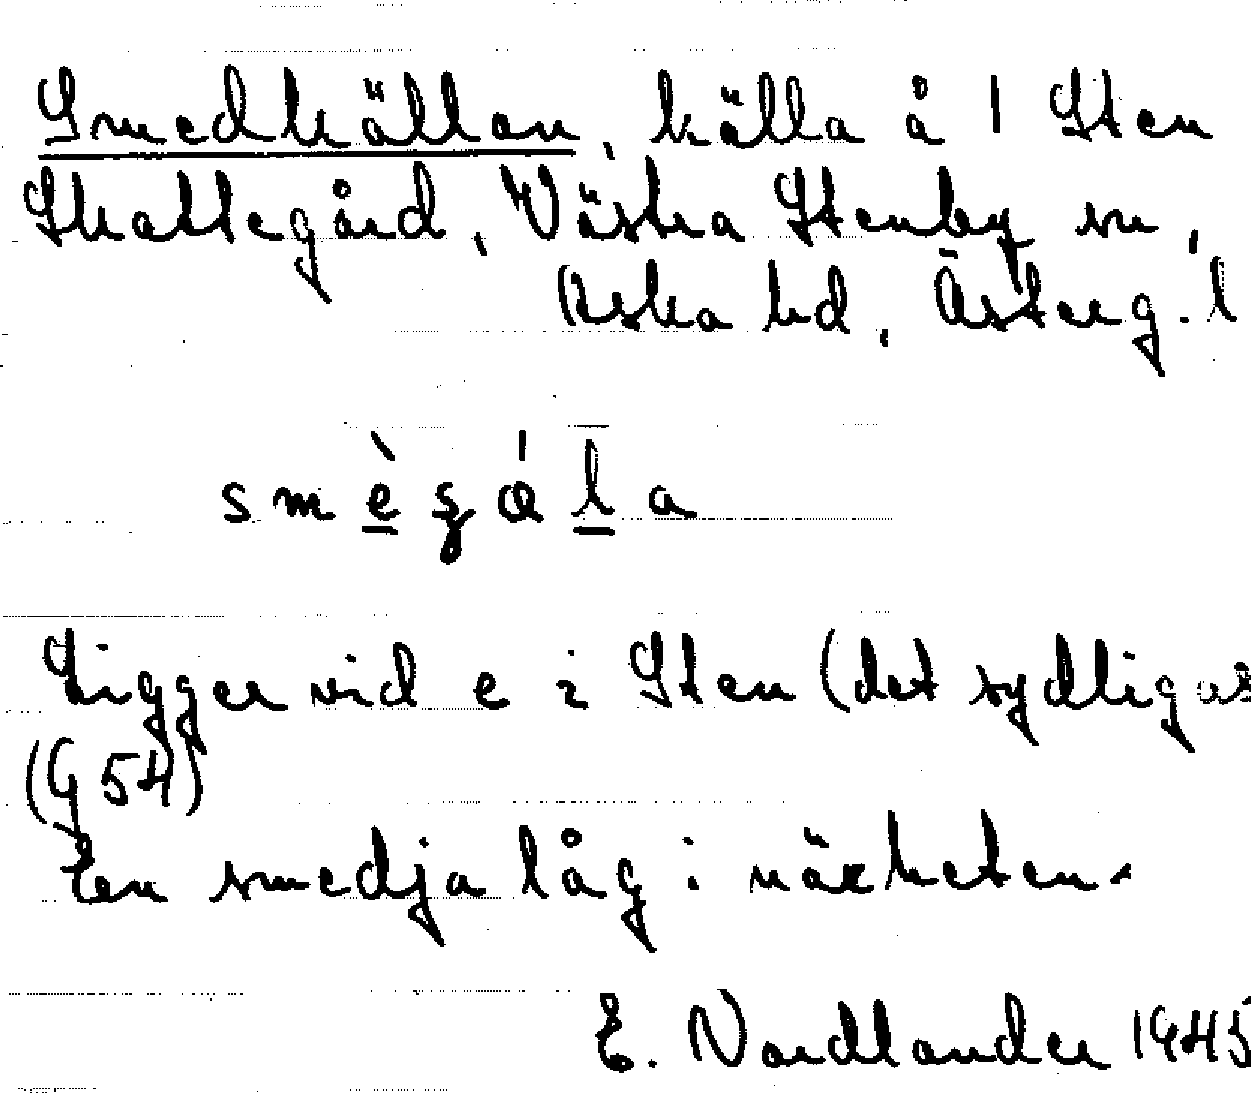 Smedkällan, källa å 1 Sten
Skattegård, Västra Stenby sn,
Aska hd, Österg. l
smègǽla
Ligger vid e i Sten (det sydligas
(G 54)
En smedja låg i närheten.
E. Nordlander 1945